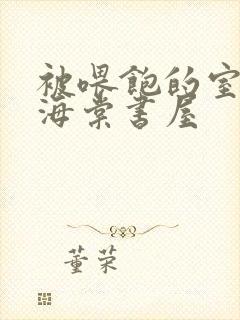 被喂饱的室
海棠书屋
董荣